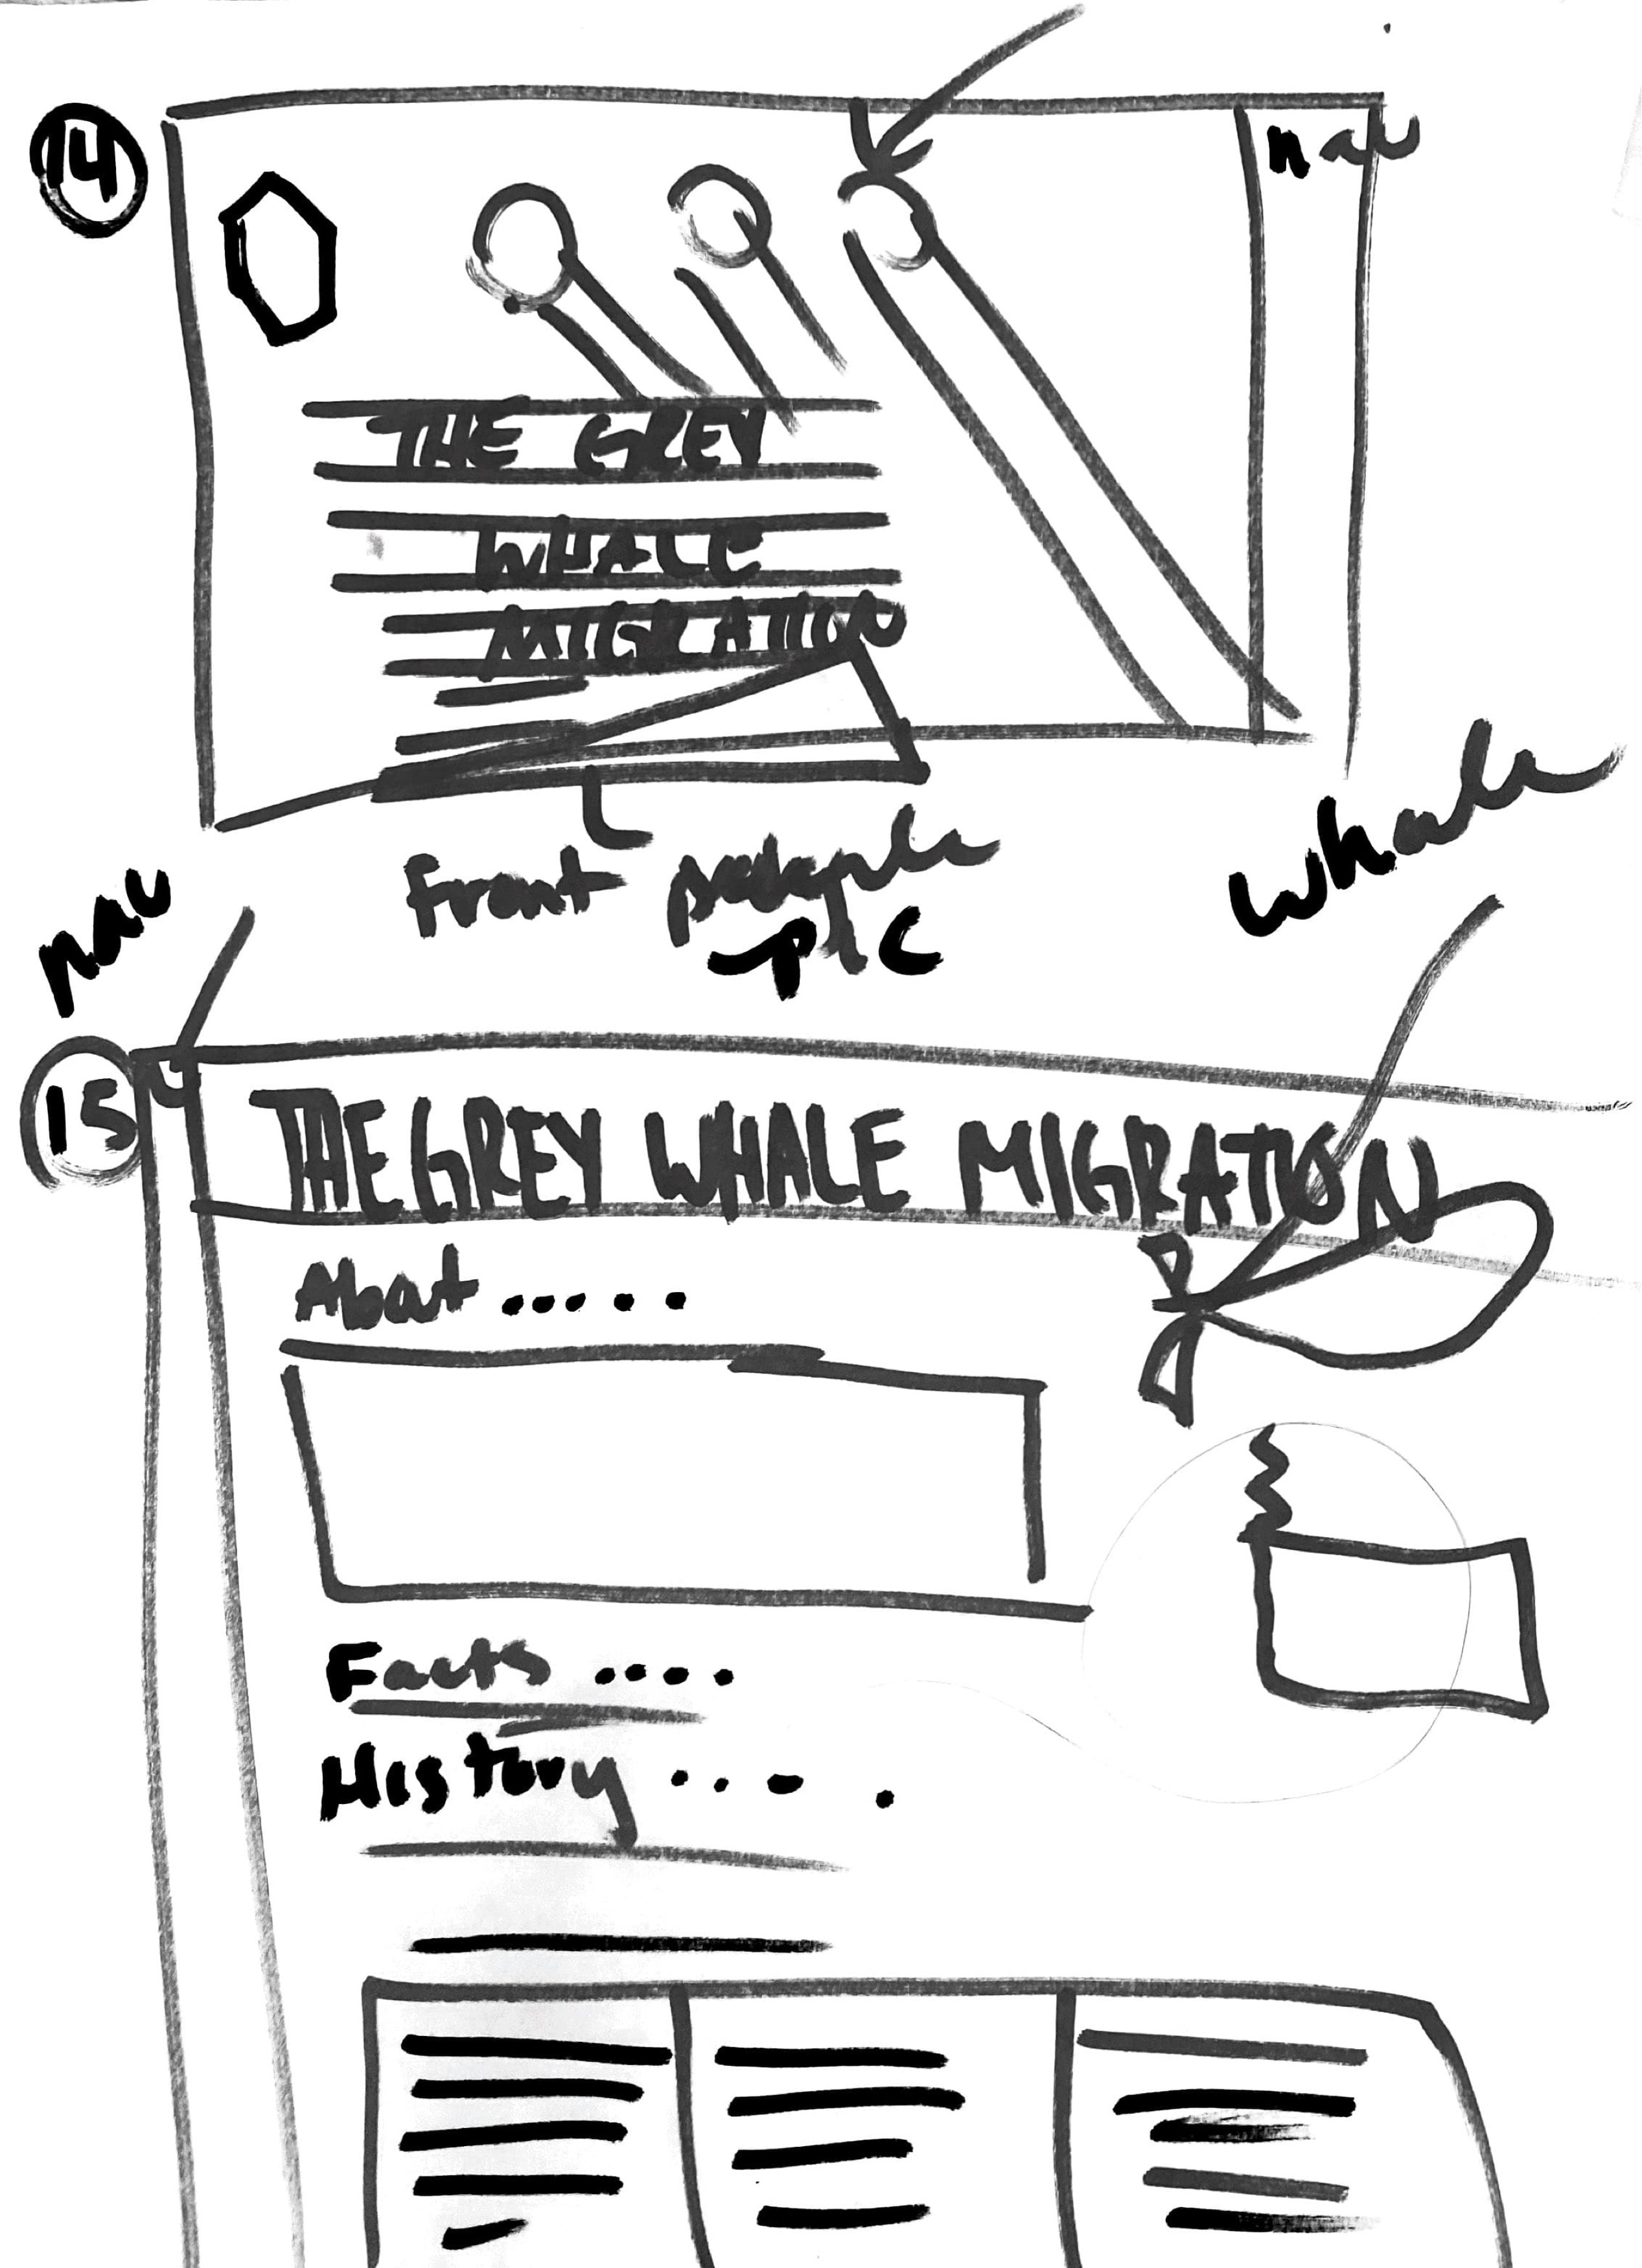 14
nav
THE GREY
WHALE
MIGRATION
Front people
pic
whale
nav
15
THE GREY WHALE MIGRATION
About .....
Facts ....
History ....